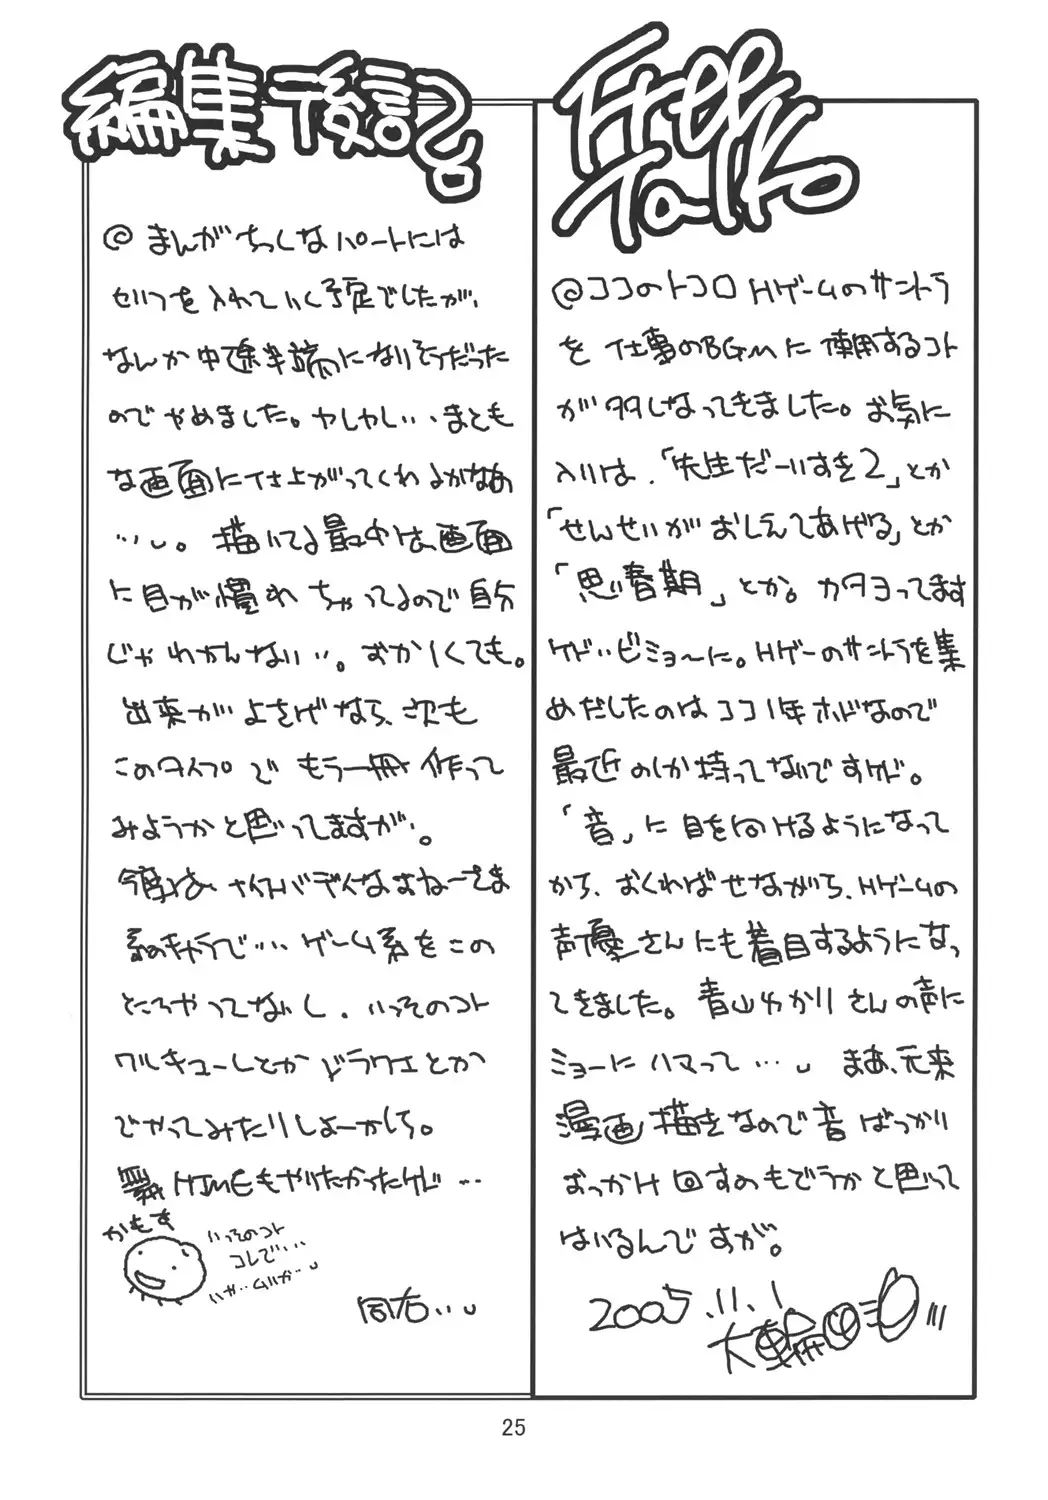 Free
Talk
@ココのトコロHゲームのサントラ
を仕事のBGMに使用するコト
が多しなってきました。お気に
入りは、「先生だーいすき2」とか
「せんせいがおしえてあげる」とか
「思春期」とか。カタヨってます
ケド‥ビミョ〜に。Hゲーのサントラを集
めだしたのはココ1年ホドなので
最近のしか持ってないですけど。
「音」に目を向けるようになって
から、おくればせながら、Hゲームの
声優さんにも着目するようになっ
てきました。青山ゆかりさんの声に
ミョーにハマって…
まあ、元来
漫画描きなので音ばっかり
おっかけ回すのもどうかと思って
はいるんですが。
2005.11.1
大輪
編集後記
@まんがちっくなパートには
セリフを入れていく予定でしたが、
なんか中途半端になりそうだった
のでやめました。しかしかし‥、まとも
な画面に仕上がってくれるかなあ
…。描いてる最中は、画面
に目が慣れちゃってるので自分
じゃわかんない‥。おかしくても。
出来がよさげなら、次も
このタイプでもう一冊作って
みようかと思ってますが‥。
今度は、ナイスバディなおねーさま
系のキャラで‥‥ゲーム系をこの
ところやってないし、いっそのコト
ワルキューレとかドラクエとか
でやってみたりしよーかしら。
舞HIMEもやりたかったけど…
かもす
いっそのコト
コレで‥‥
いや‥ムリか‥
同右‥
25